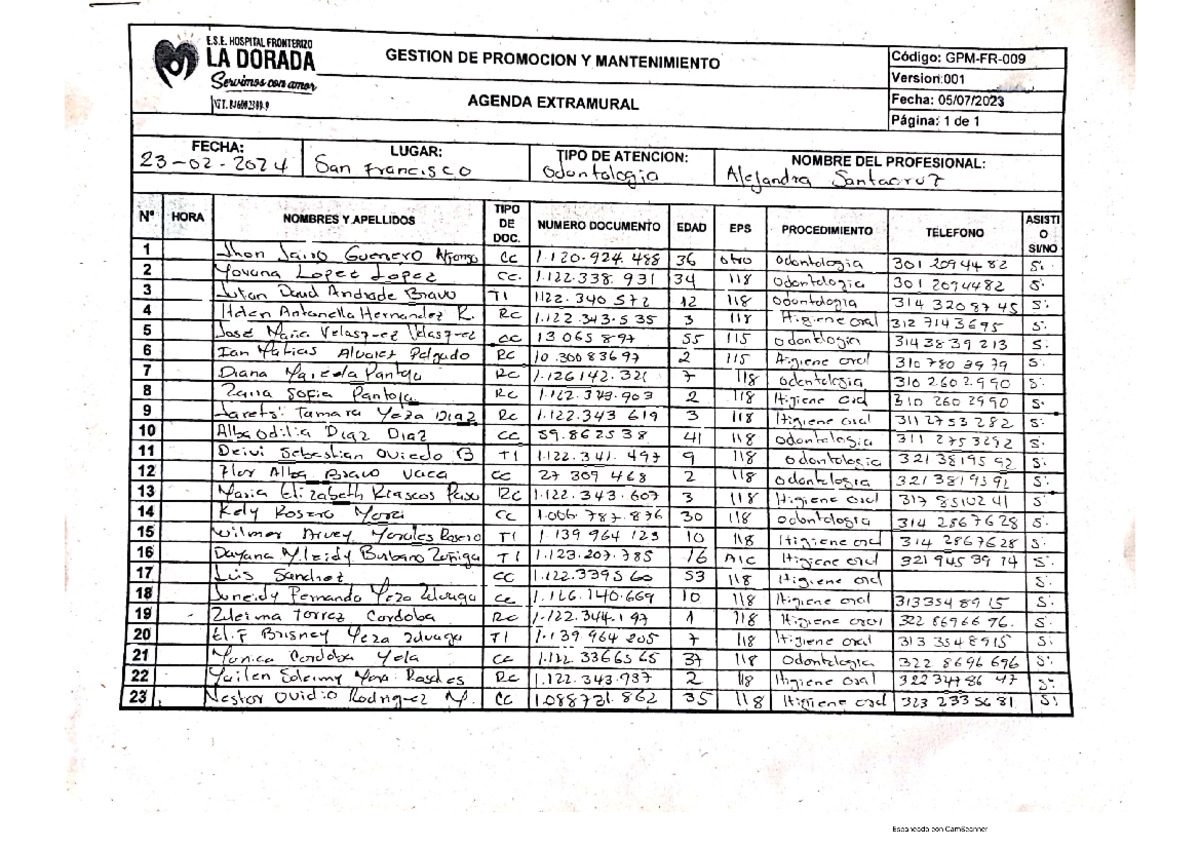 E.S.E. HOSPITAL FRONTERIZO
LA DORADA
Servimos con amor
GESTION DE PROMOCION Y MANTENIMIENTO
AGENDA EXTRAMURAL
Código: GPM-FR-009
Version:001
Fecha: 05/07/2023
Página: 1 de 1
FECHA: 23-02-2024 LUGAR: San Francisco TIPO DE ATENCION: Odontologia NOMBRE DEL PROFESIONAL: Alejandra Santacruz
N° HORA NOMBRES Y APELLIDOS TIPO DE DOC. NUMERO DOCUMENTO EDAD EPS PROCEDIMIENTO TELEFONO ASISTIO SI/NO
1 Jhon Jairo Guerrero CC 1.120.924.488 36 otro Odontologia 301 2094482 Si
2 Yovana Lopez Lopez CC. 1.122.338.931 34 118 Odontologia 301 2094482 Si
3 David Andrade Bravo TI 1122.340.572 12 118 Odontologia 314 3208745 Si
4 Antonella Hernandez R. RC 1.122.343.535 3 118 Higiene oral 312 7143695 Si
5 José Maria Velasquez Velasquez CC 13 065 897 55 115 odontlogia 314 3839213 Si
6 Ian Matias Alvarez Delgado RC 10.30083697 2 115 Higiene oral 310 780 3979 Si
7 Diana Marcela Pantoja RC 1.126142.321 7 118 odontologia 310 260 2990 Si
8 Sofia Pantoja RC 2 118 Higiene oral 310 260 2990 Si
9 Tamara Yeza Diaz RC 1.122.343 619 3 118 Higiene oral 311 2753282 Si
10 Alba Odilia Diaz Diaz CC 59.862538 41 118 Odontologia 311 2753292 Si
11 Deivi Sebastian Oviedo B TI 1.122.341.497 9 118 odontologia 321 3819592 Si
12 Flor Alba Bravo Vaca CC 27 309 468 2 118 Odontologia 321 3819592 Si
13 Maria Elizabeth Riascos RC 1.122.343.607 3 118 Higiene oral 317 8510241 Si
14 Kely Rosero Mora CC 1.006.787.876 30 118 odontologia 314 2867628 Si
15 Wilmer Arvey Morales Rosero TI 1 139 964 123 10 118 Higiene oral 314 2867628 Si
16 Dayana Burbano Zuñiga TI 1.123.207.785 16 AIC Higiene oral 321 945 39 74 Si
17 Luis Sanchez CC 1.122.339560 53 118 Higiene oral Si
18 Fernando Yeza 1.126.140.669 10 118 Higiene oral 3133548915 Si
19 Zuleima Torrez Cordoba RC 1.122.344.197 1 118 Higiene oral 322 8696676. Si
20 Brisney Yeza TI 1.139 964 205 7 118 Higiene oral 313 3548915 Si
21 Monica Cordoba Yela CC 1.122.3366565 37 118 Odontologia 322 8696 696 Si
22 Yuilen Mora Rosales RC 1.122.343.937 2 118 Higiene oral Si
23 Nestor Ovidio Rodriguez M. CC 1.088731.862 35 118 Higiene oral 323 2335681 Si
Escaneado con CamScanner